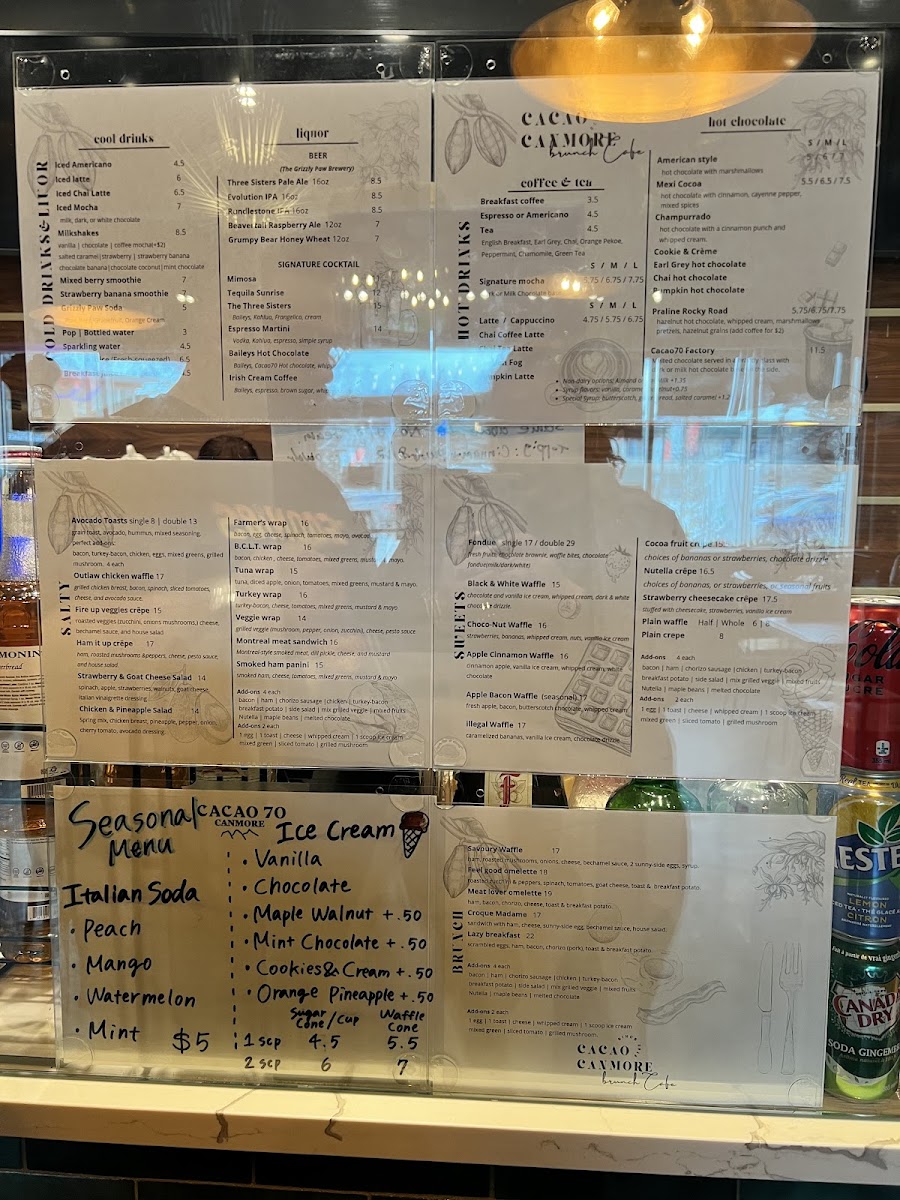 COLD DRINKS&LIUOR
cool drinks
Iced Americano 4.5
Iced latte 6
Iced Chai Latte 6.5
Iced Mocha 7
milk, dark, or white chocolate
Milkshakes 8.5
vanilla | chocolate | coffee mocha(+$2)
salted caramel|strawberry | strawberry banana
chocolate banana|chocolate coconut|mint chocolate
Mixed berry smoothie 7
Strawberry banana smoothie 7
Grizzly Paw Soda 5
Orange Cream
Pop | Bottled water 3
Sparkling water 4.5
(Fresh squeezed) 6.5
liquor
BEER
(The Grizzly Paw Brewery)
Three Sisters Pale Ale 16oz 8.5
Evolution IPA 16oz 8.5
Rundlestone IPA 16oz 8.5
Beavertail Raspberry Ale 12oz 7
Grumpy Bear Honey Wheat 12oz 7
SIGNATURE COCKTAIL
Mimosa
Tequila Sunrise
The Three Sisters 15
Baileys, Kahlua, Frangelico, cream
Espresso Martini 14
Vodka, Kahlua, espresso, simple syrup
Baileys Hot Chocolate
Baileys, Cacao70 Hot chocolate,
Irish Cream Coffee
Baileys, espresso, brown sugar,
HOT DRINKS
CACAO
CANMORE
brunch Cafe
coffee & tea
Breakfast coffee 3.5
Espresso or Americano 4.5
Tea 4.5
English Breakfast, Earl Grey, Chai, Orange Pekoe,
Peppermint, Chamomile, Green Tea
S / M / L
Signature mocha 5.75 / 6.75 / 7.75
or Milk Chocolate
S / M / L
Latte / Cappuccino 4.75 / 5.75 / 6.75
Chai Coffee Latte
Latte
Fog
Latte
Non-dairy options: Almond milk +1.25
Syrup flavors: vanilla, caramel,
Special Syrup: butterscotch, gingerbread, salted caramel +1.2
hot chocolate
S / M / L
American style 5 / 6 / 7
hot chocolate with marshmallows
Mexi Cocoa 5.5 / 6.5 / 7.5
hot chocolate with cinnamon, cayenne pepper,
mixed spices
Champurrado
hot chocolate with a cinnamon punch and
whipped cream.
Cookie & Crème
Earl Grey hot chocolate
Chai hot chocolate
Pumpkin hot chocolate
Praline Rocky Road 5.75/6.75/7.75
hazelnut hot chocolate, whipped cream, marshmallow,
pretzels, hazelnut grains (add coffee for $2)
Cacao70 Factory 11.5
Melted chocolate served in a with
or milk hot chocolate the side.
SALTY
Avocado Toasts single 8 | double 13
grain toast, avocado, hummus, mixed seasoning.
perfect add-ons:
bacon, turkey-bacon, chicken, eggs, mixed greens, grilled
mushroom. 4 each
Outlaw chicken waffle 17
grilled chicken breast, bacon, spinach, sliced tomatoes,
cheese, and avocado sauce.
Fire up veggies crêpe 15
roasted veggies (zucchini, onions mushrooms,) cheese,
bechamel sauce, and house salad
Ham it up crêpe 17
ham, roasted mushrooms &peppers, cheese, pesto sauce,
and house salad
Strawberry & Goat Cheese Salad 14
spinach, apple, strawberries, walnuts, goat cheese,
italian vinaigrette dressing
Chicken & Pineapple Salad 14
Spring mix, chicken breast, pineapple, pepper, onion,
cherry tomato, avocado dressing.
Farmer's wrap 16
bacon, egg, cheese, spinach, tomatoes, mayo, avocado
B.C.L.T. wrap 16
bacon, chicken , cheese, tomatoes, mixed greens, mustard & mayo.
Tuna wrap 15
tuna, diced apple, onion, tomatoes, mixed greens, mustard & mayo.
Turkey wrap 16
turkey-bacon, cheese, tomatoes, mixed greens, mustard & mayo
Veggie wrap 14
grilled veggie (mushroom, pepper, onion, zucchini), cheese, pesto sauce
Montreal meat sandwich 16
Montreal-style smoked meat, dill pickle, cheese, and mustard
Smoked ham panini 15
smoked ham, cheese, tomatoes, mixed greens, mustard & mayo
Add-ons 4 each
bacon | ham | chorizo sausage |chicken | turkey-bacon
breakfast potato | side salad | mix grilled veggie | mixed fruits
Nutella | maple beans | melted chocolate
Add-ons 2 each
1 egg | 1 toast | cheese | whipped cream | 1 scoop ice cream
mixed green | sliced tomato | grilled mushroom
SWEETS
Fondue single 17 / double 29
fresh fruits, chocolate brownie, waffle bites, chocolate
fondue(milk/dark/white)
Black & White Waffle 15
chocolate and vanilla ice cream, whipped cream, dark & white
chocolate drizzle.
Choco-Nut Waffle 16
strawberries, bananas, whipped cream, nuts, vanilla ice cream
Apple Cinnamon Waffle 16
cinnamon apple, vanilla ice cream, whipped cream, white
chocolate
Apple Bacon Waffle (seasonal) 17
fresh apple, bacon, butterscotch chocolate, whipped cream
illegal Waffle 17
caramelized bananas, vanilla ice cream, chocolate drizzle
Cocoa fruit crêpe 15
choices of bananas or strawberries, chocolate drizzle
Nutella crêpe 16.5
choices of bananas, or strawberries, or seasonal fruits
Strawberry cheesecake crêpe 17.5
stuffed with cheesecake, strawberries, vanilla ice cream
Plain waffle Half | Whole 6 | 8
Plain crepe 8
Add-ons 4 each
bacon | ham | chorizo sausage |chicken | turkey-bacon
breakfast potato | side salad | mix grilled veggie | mixed fruits
Nutella | maple beans | melted chocolate
Add-ons 2 each
1 egg | 1 toast | cheese | whipped cream | 1 scoop ice cream
mixed green | sliced tomato | grilled mushroom
Seasonal
Menu
CACAO 70
CANMORE
Italian Soda
• Peach
• Mango
• Watermelon
• Mint $5
Ice Cream
• Vanilla
• Chocolate
• Maple Walnut +.50
• Mint Chocolate +.50
• Cookies & Cream +.50
• Orange Pineapple +.50
Sugar Cone/Cup Waffle Cone
1 scp 4.5 5.5
2 scp 6 7
BRUNCH
Savoury Waffle 17
ham, roasted mushrooms, onions, cheese, bechamel sauce, 2 sunny-side eggs, syrup.
Feel good omelette 18
roasted zucchini & peppers, spinach, tomatoes, goat cheese, toast & breakfast potato.
Meat lover omelette 19
ham, bacon, chorizo, cheese, toast & breakfast potato.
Croque Madame 17
sandwich with ham, cheese, sunny-side egg, bechamel sauce, house salad.
Lazy breakfast 22
scrambled eggs, ham, bacon, chorizo (pork), toast & breakfast potato
Add-ons 4 each
bacon | ham | chorizo sausage |chicken | turkey-bacon
breakfast potato | side salad | mix grilled veggie | mixed fruits
Nutella | maple beans | melted chocolate
Add-ons 2 each
1 egg | 1 toast | cheese | whipped cream | 1 scoop ice cream
mixed green | sliced tomato | grilled mushroom.
CACAO
CANMORE
brunch Cafe
MONIN
SUGAR
SUCRE
NESTEA
LEMON
CITRON
CANADA
DRY
SODA GINGEMB